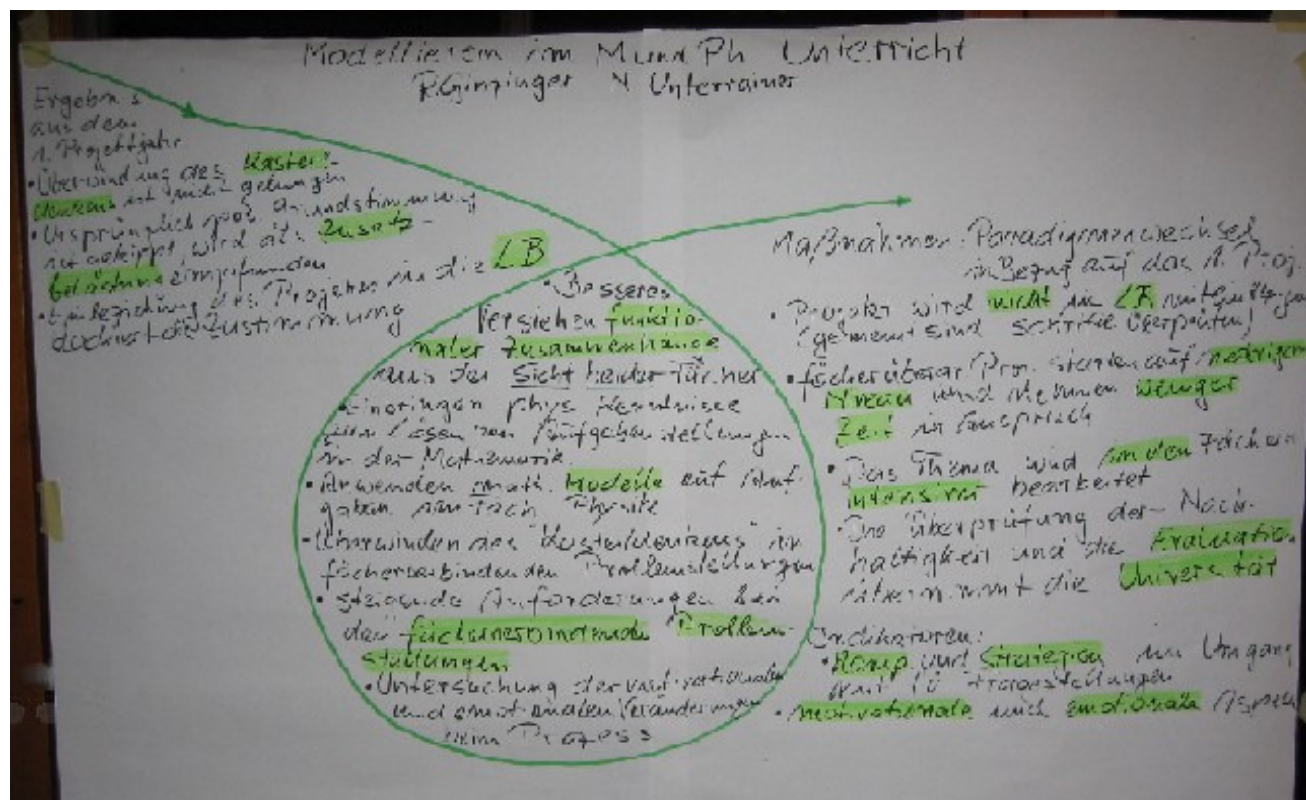 Modellieren im M und Ph Unterricht
R. Ginzinger N Unterrainer
Ergebnis
aus dem
1. Projektjahr
• Überwindung des Kasterl-
denkens ist nicht gelungen
• Ursprünglich pos. Grundstimmung
ist gekippt, wird als Zusatz-
belastung empfunden
• Einbeziehung des Projektes in die LB
die Zustimmung
• Besseres
Verstehen funktio-
naler Zusammenhänge
aus der Sicht beider Fächer
• Einbringen phys. Kenntnisse
zum Lösen von Aufgabenstellungen
in der Mathematik
• Anwenden math. Modelle auf Auf-
gaben im Fach Physik
• Überwinden des "Kasterldenkens" in
fächerverbindenden Problemstellungen
• steigende Anforderungen bei
den fächerverbindenden Problem-
stellungen
• Untersuchung der
und emotionalen Veränderungen
beim Prozess
Maßnahmen: Paradigmenwechsel
in Bezug auf das 1. Proj.
• Projekt wird nicht in LB
(gemeint sind schriftl. Überprüfen)
• fächerüberg. starten auf niedrigem
Niveau und nehmen weniger
Zeit in Anspruch
• Das Thema wird in den Fächern
intensiver bearbeitet
• Die Überprüfung der Nach-
haltigkeit und die Evaluation
übernimmt die Universität
Indikatoren:
• Komp. und Strategien im Umgang
mit Fragestellungen
• motivationale und emotionale